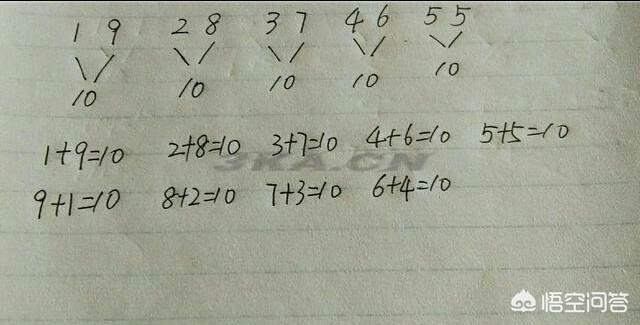 1 9 2 8 3 7 4 6 5 5
10 10 10 10 10
1+9=10 2+8=10 3+7=10 4+6=10 5+5=10
3KA.CN
9+1=10 8+2=10 7+3=10 6+4=10
悟空问答